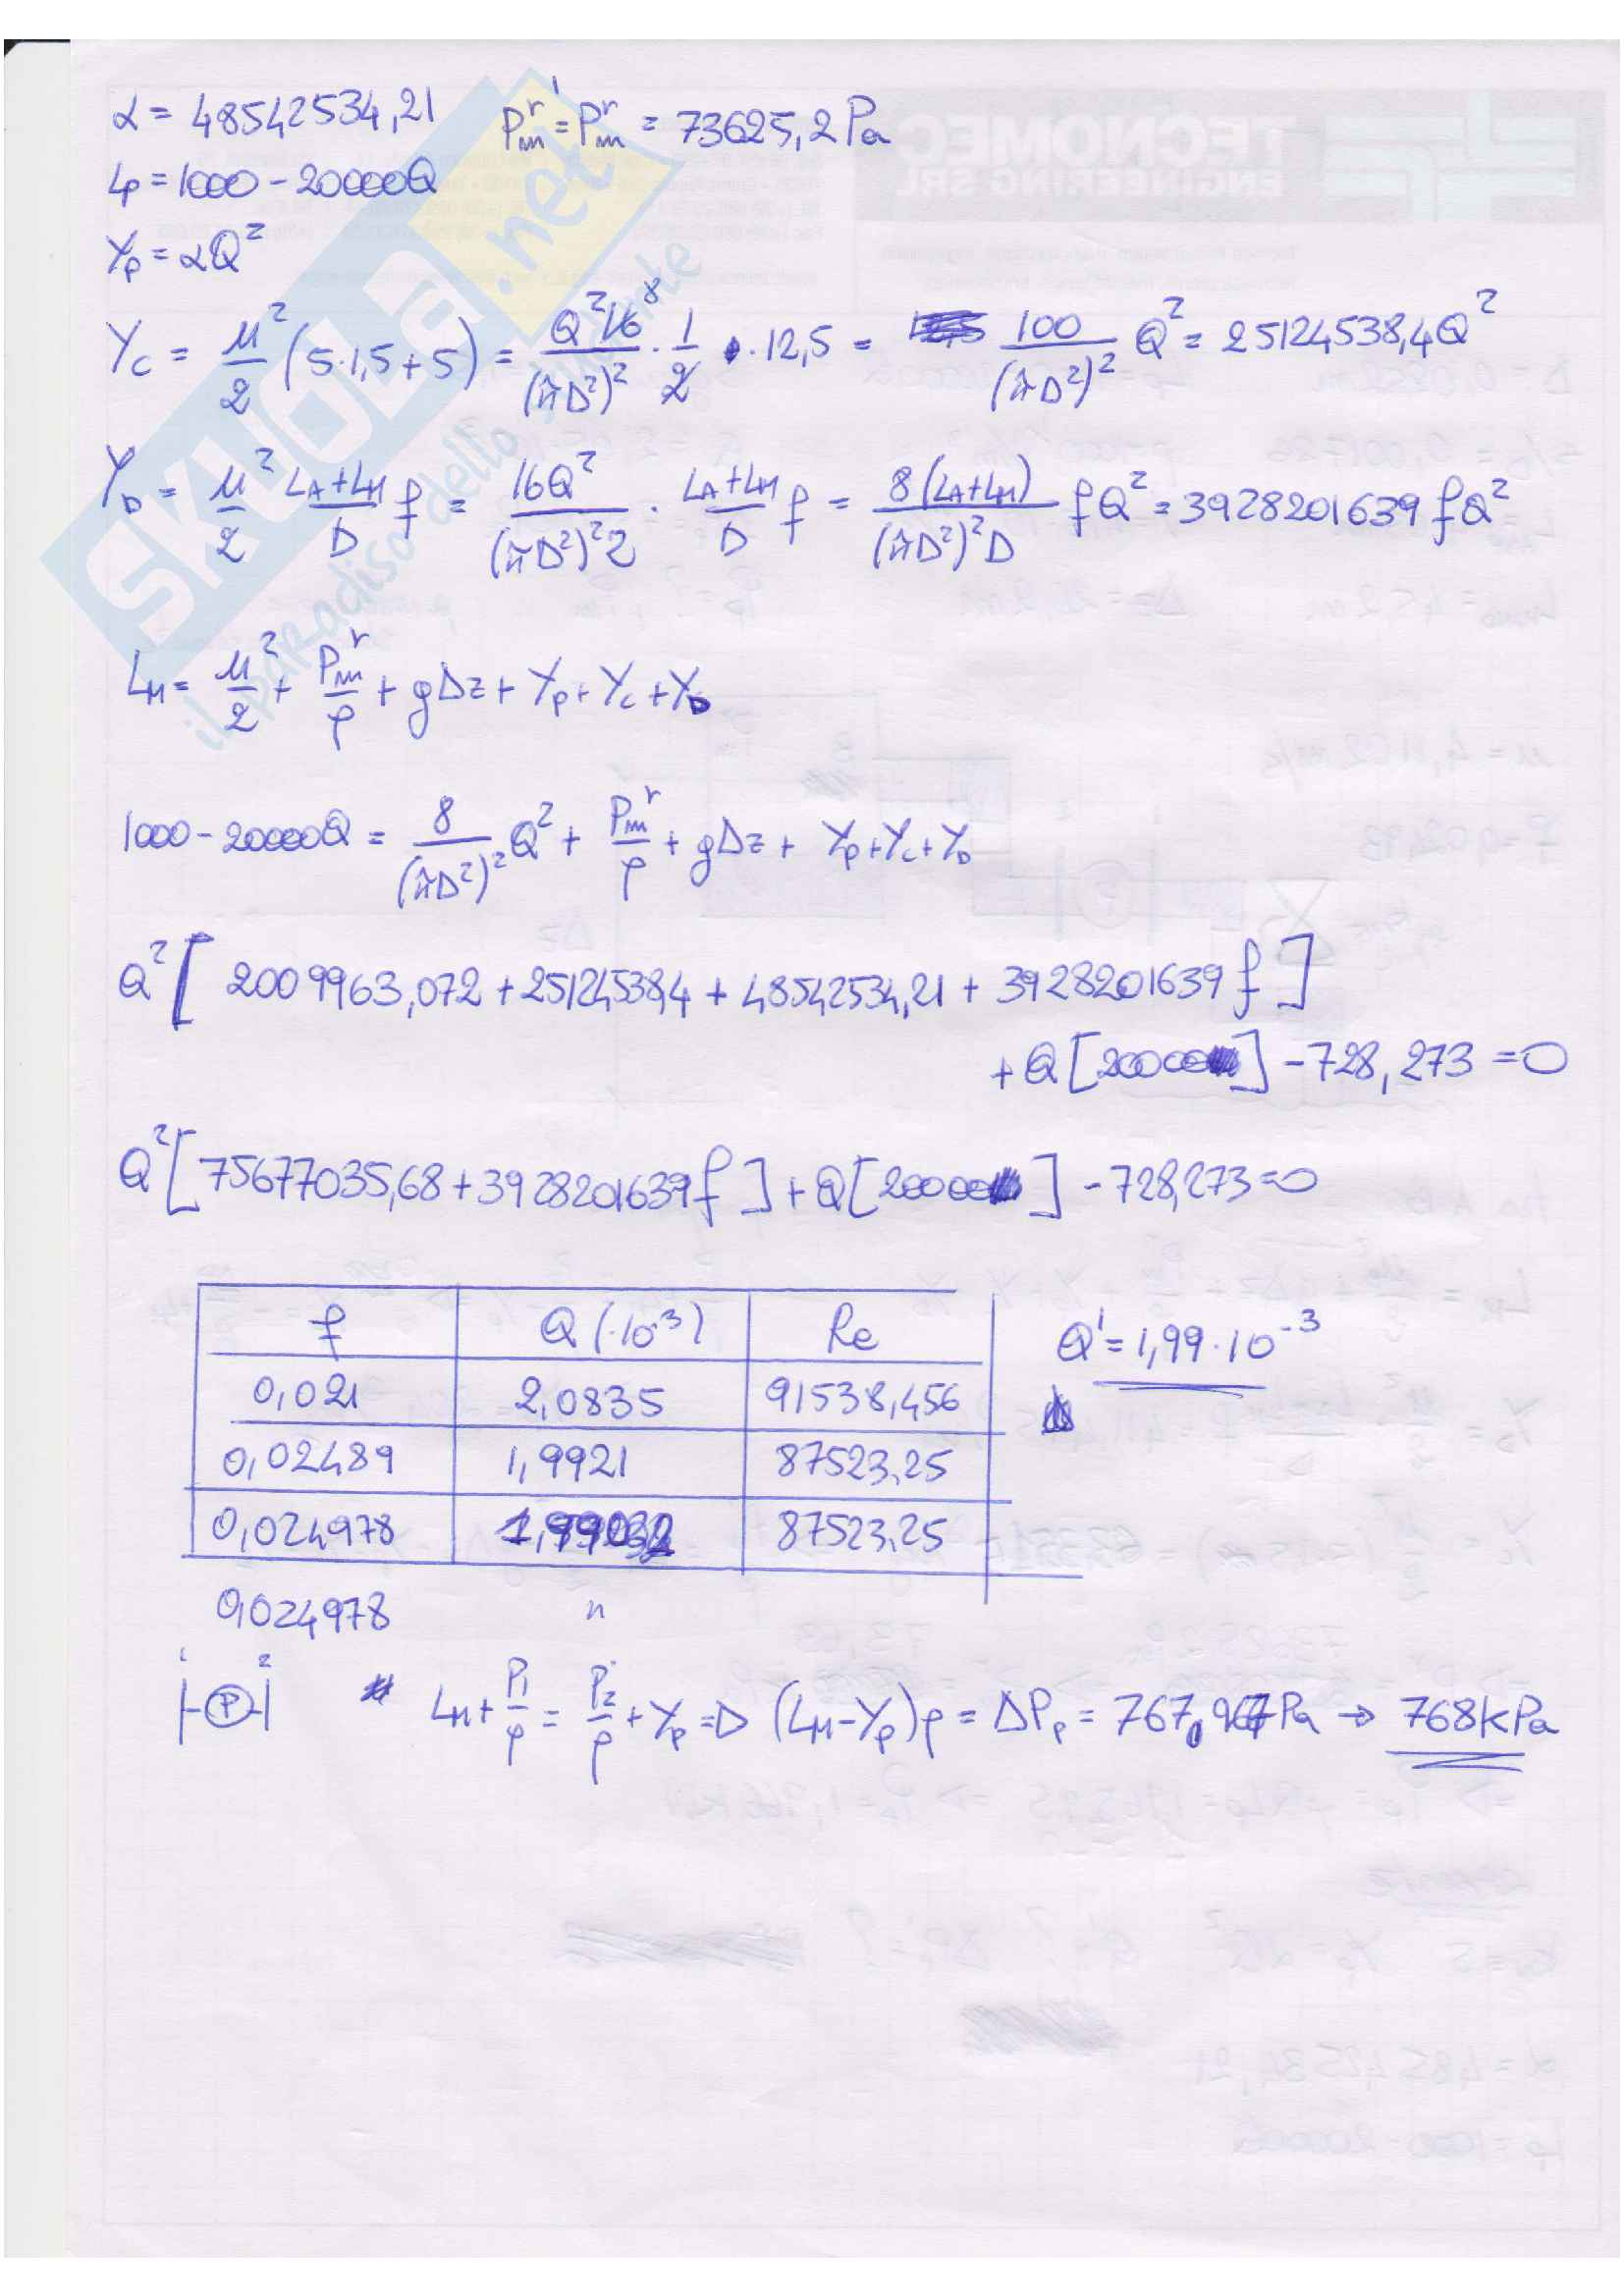 α = 48542534,21 Pm^r' = Pm^r = 73625,2 Pa
Lp = 1000 - 20000Q
Yp = αQ²
Yc = u²/2 (5·1,5+5) = Q² 16 8/(πD²)² · 1/2 · 12,5 = 100/(πD²)² Q² = 25124538,4Q²
YD = u²/2 (LA+LM)/D f = 16Q²/((πD²)²2) · (LA+LM)/D f = 8(LA+LM)/((πD²)²D) fQ² = 3928201639 fQ²
LM = u²/2 + Pm^r/ρ + gΔz + Yp + Yc + YD
1000 - 20000Q = 8/(πD²)² Q² + Pm^r/ρ + gΔz + Yp + Yc + YD
Q² [ 2009963,072 + 25124538,4 + 48542534,21 + 3928201639 f ]
+ Q [20000] - 728,273 = 0
Q² [75677035,68 + 3928201639 f ] + Q [20000] - 728,273 = 0
f Q (·10⁻³) Re Q' = 1,99·10⁻³
0,021 2,0835 91538,456
0,02489 1,9921 87523,25
0,024978 87523,25
0,024978 "
1 2
P LM + P1/ρ = P2/ρ + Yp => (LM - Yp)ρ = ΔPp = 767,967 Pa → 768 kPa
SKUOLA.net
il paradiso dello studente
TECNOMEC
ENGINEERING SRL